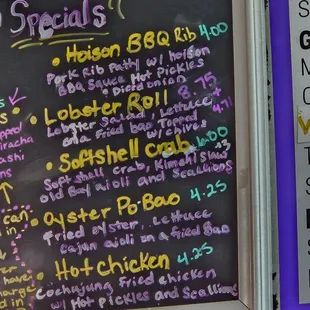 Specials
• Hoison BBQ Rib 4.00
Pork Rib Patty w/ hoison
BBQ Sauce Hot Pickles
+ Diced onion
• Lobster Roll 8.75
Lobster Salad, Lettuce +
on a fried bao Topped
w/ chives
• Softshell crab
Soft shell crab, Kimchi Slaw
Old Bay aioli and Scallions
• Oyster Po Bao 4.25
Fried oyster, Lettuce
cajun aioli on a fried Bao
• Hot Chicken 4.25
Gochujung Fried chicken
w/ Hot Pickles and Scallions